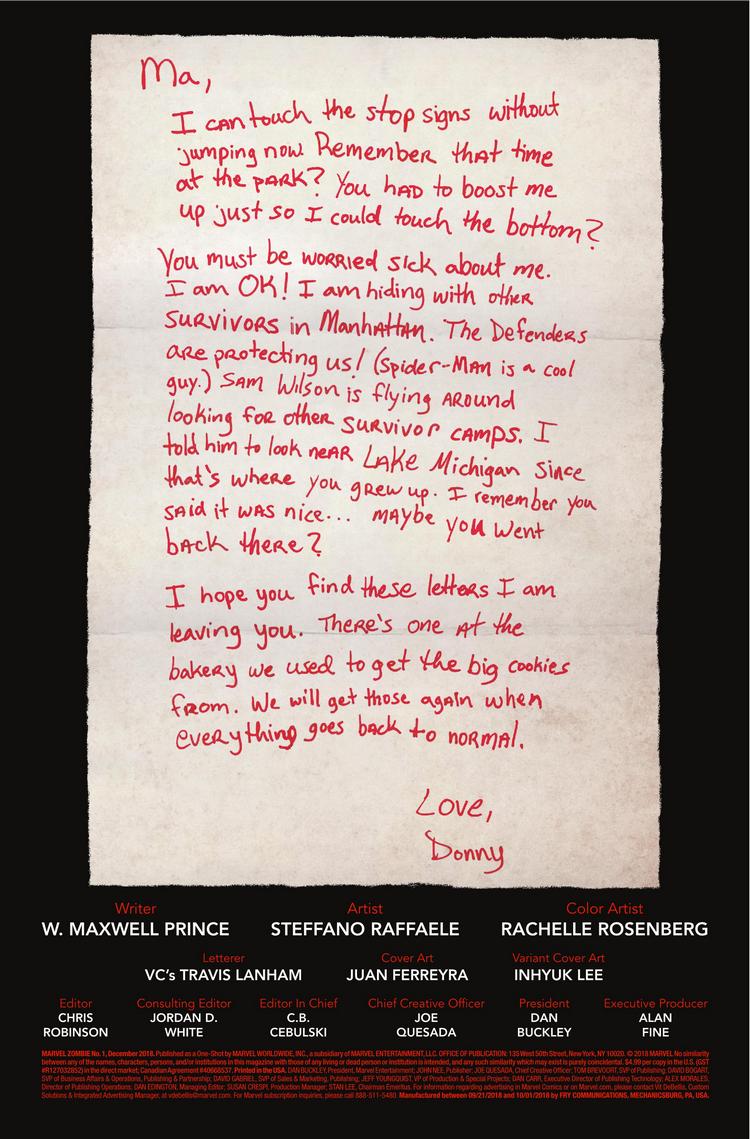 Ma,
I can touch the stop signs without
jumping now Remember that time
at the PARK? You HAD to boost me
up just so I could touch the bottom?
You must be WORRIED sick about me.
I am OK! I am hiding with other
SURVIVORS in ManhAttAn. The Defenders
ARE protecting us! (Spider-MAN is a cool
guy.) SAM Wilson is flying AROUND
looking FOR other SURVIVOR CAMPS. I
told him to look neAR LAKe Michigan since
that's where you grew up. I remember you
SAid it wAS nice... MAYbe you went
bAck theRe?
I hope you find these letteRs I am
leaving you. TheRe's one At the
bakeRy we used to get the big cookies
fRom. We will get those again when
eveRything goes back to noRmAl.
Love,
Donny
Writer Artist Color Artist
W. MAXWELL PRINCE STEFFANO RAFFAELE RACHELLE ROSENBERG
Letterer Cover Art Variant Cover Art
VC's TRAVIS LANHAM JUAN FERREYRA INHYUK LEE
Editor Consulting Editor Editor In Chief Chief Creative Officer President Executive Producer
CHRIS JORDAN D. C.B. JOE DAN ALAN
ROBINSON WHITE CEBULSKI QUESADA BUCKLEY FINE
MARVEL ZOMBIE No. 1, December 2018. Published as a One-Shot by MARVEL WORLDWIDE, INC., a subsidiary of MARVEL ENTERTAINMENT, LLC. OFFICE OF PUBLICATION: 135 West 50th Street, New York, NY 10020. © 2018 MARVEL No similarity
between any of the names, characters, persons, and/or institutions in this magazine with those of any living or dead person or institution is intended, and any such similarity which may exist is purely coincidental. $4.99 per copy in the U.S. (GST
#R127032852) in the direct market; Canadian Agreement #40668537. Printed in the USA. DAN BUCKLEY, President, Marvel Entertainment; JOHN NEE, Publisher; JOE QUESADA, Chief Creative Officer; TOM BREVOORT, SVP of Publishing; DAVID BOGART,
SVP of Business Affairs & Operations, Publishing & Partnership; DAVID GABRIEL, SVP of Sales & Marketing, Publishing; JEFF YOUNGQUIST, VP of Production & Special Projects; DAN CARR, Executive Director of Publishing Technology; ALEX MORALES,
Director of Publishing Operations; DAN EDINGTON, Managing Editor; SUSAN CRESPI, Production Manager; STAN LEE, Chairman Emeritus. For information regarding advertising in Marvel Comics or on Marvel.com, please contact Vit DeBellis, Custom
Solutions & Integrated Advertising Manager, at vdebellis@marvel.com. For Marvel subscription inquiries, please call 888-511-5480. Manufactured between 09/21/2018 and 10/01/2018 by FRY COMMUNICATIONS, MECHANICSBURG, PA, USA.